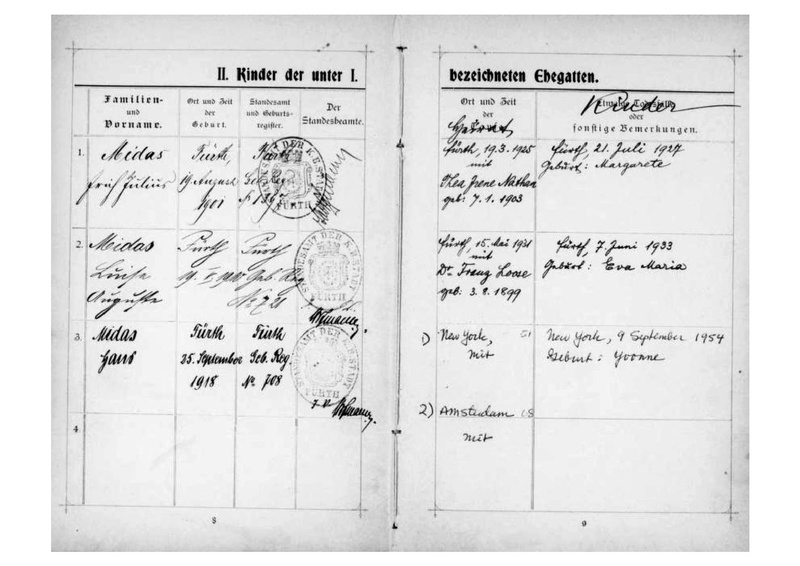 II. Kinder der unter I.
Familien-
und
Vorname.
Ort und Zeit
der
Geburt.
Standesamt
und Geburts-
register.
Der
Standesbeamte.
1.
Midas
Julius
Fürth,
19 August
1901
Fürth
Geb. Reg.
STANDESAMT DER K.B. STADT
FÜRTH
2.
Midas
Luise
Auguste
Fürth
19. V
Fürth
Geb. Reg
No 721
STANDESAMT DER K.B. STADT
FÜRTH
3.
Midas
Hans
Fürth
25. September
1918
Fürth
Geb. Reg.
No. 708
STANDESAMT DER K.B. STADT
FÜRTH
4.
8
bezeichneten Ehegatten.
Ort und Zeit
der
Heirat
Kinder
oder
sonstige Bemerkungen.
Fürth, 19.3.1925
mit
Thea Irene Nathan
geb: 7.1.1903
Fürth, 21. Juli 1927
Geburt: Margarete
Fürth, 15. Mai 1931
mit
Dr. Franz Loose
geb: 3.8.1899
Fürth, 7. Juni 1933
Geburt: Eva Maria
1) New York, 51
mit
New York, 9 September 1954
Geburt: Yvonne
2) Amsterdam
mit
9